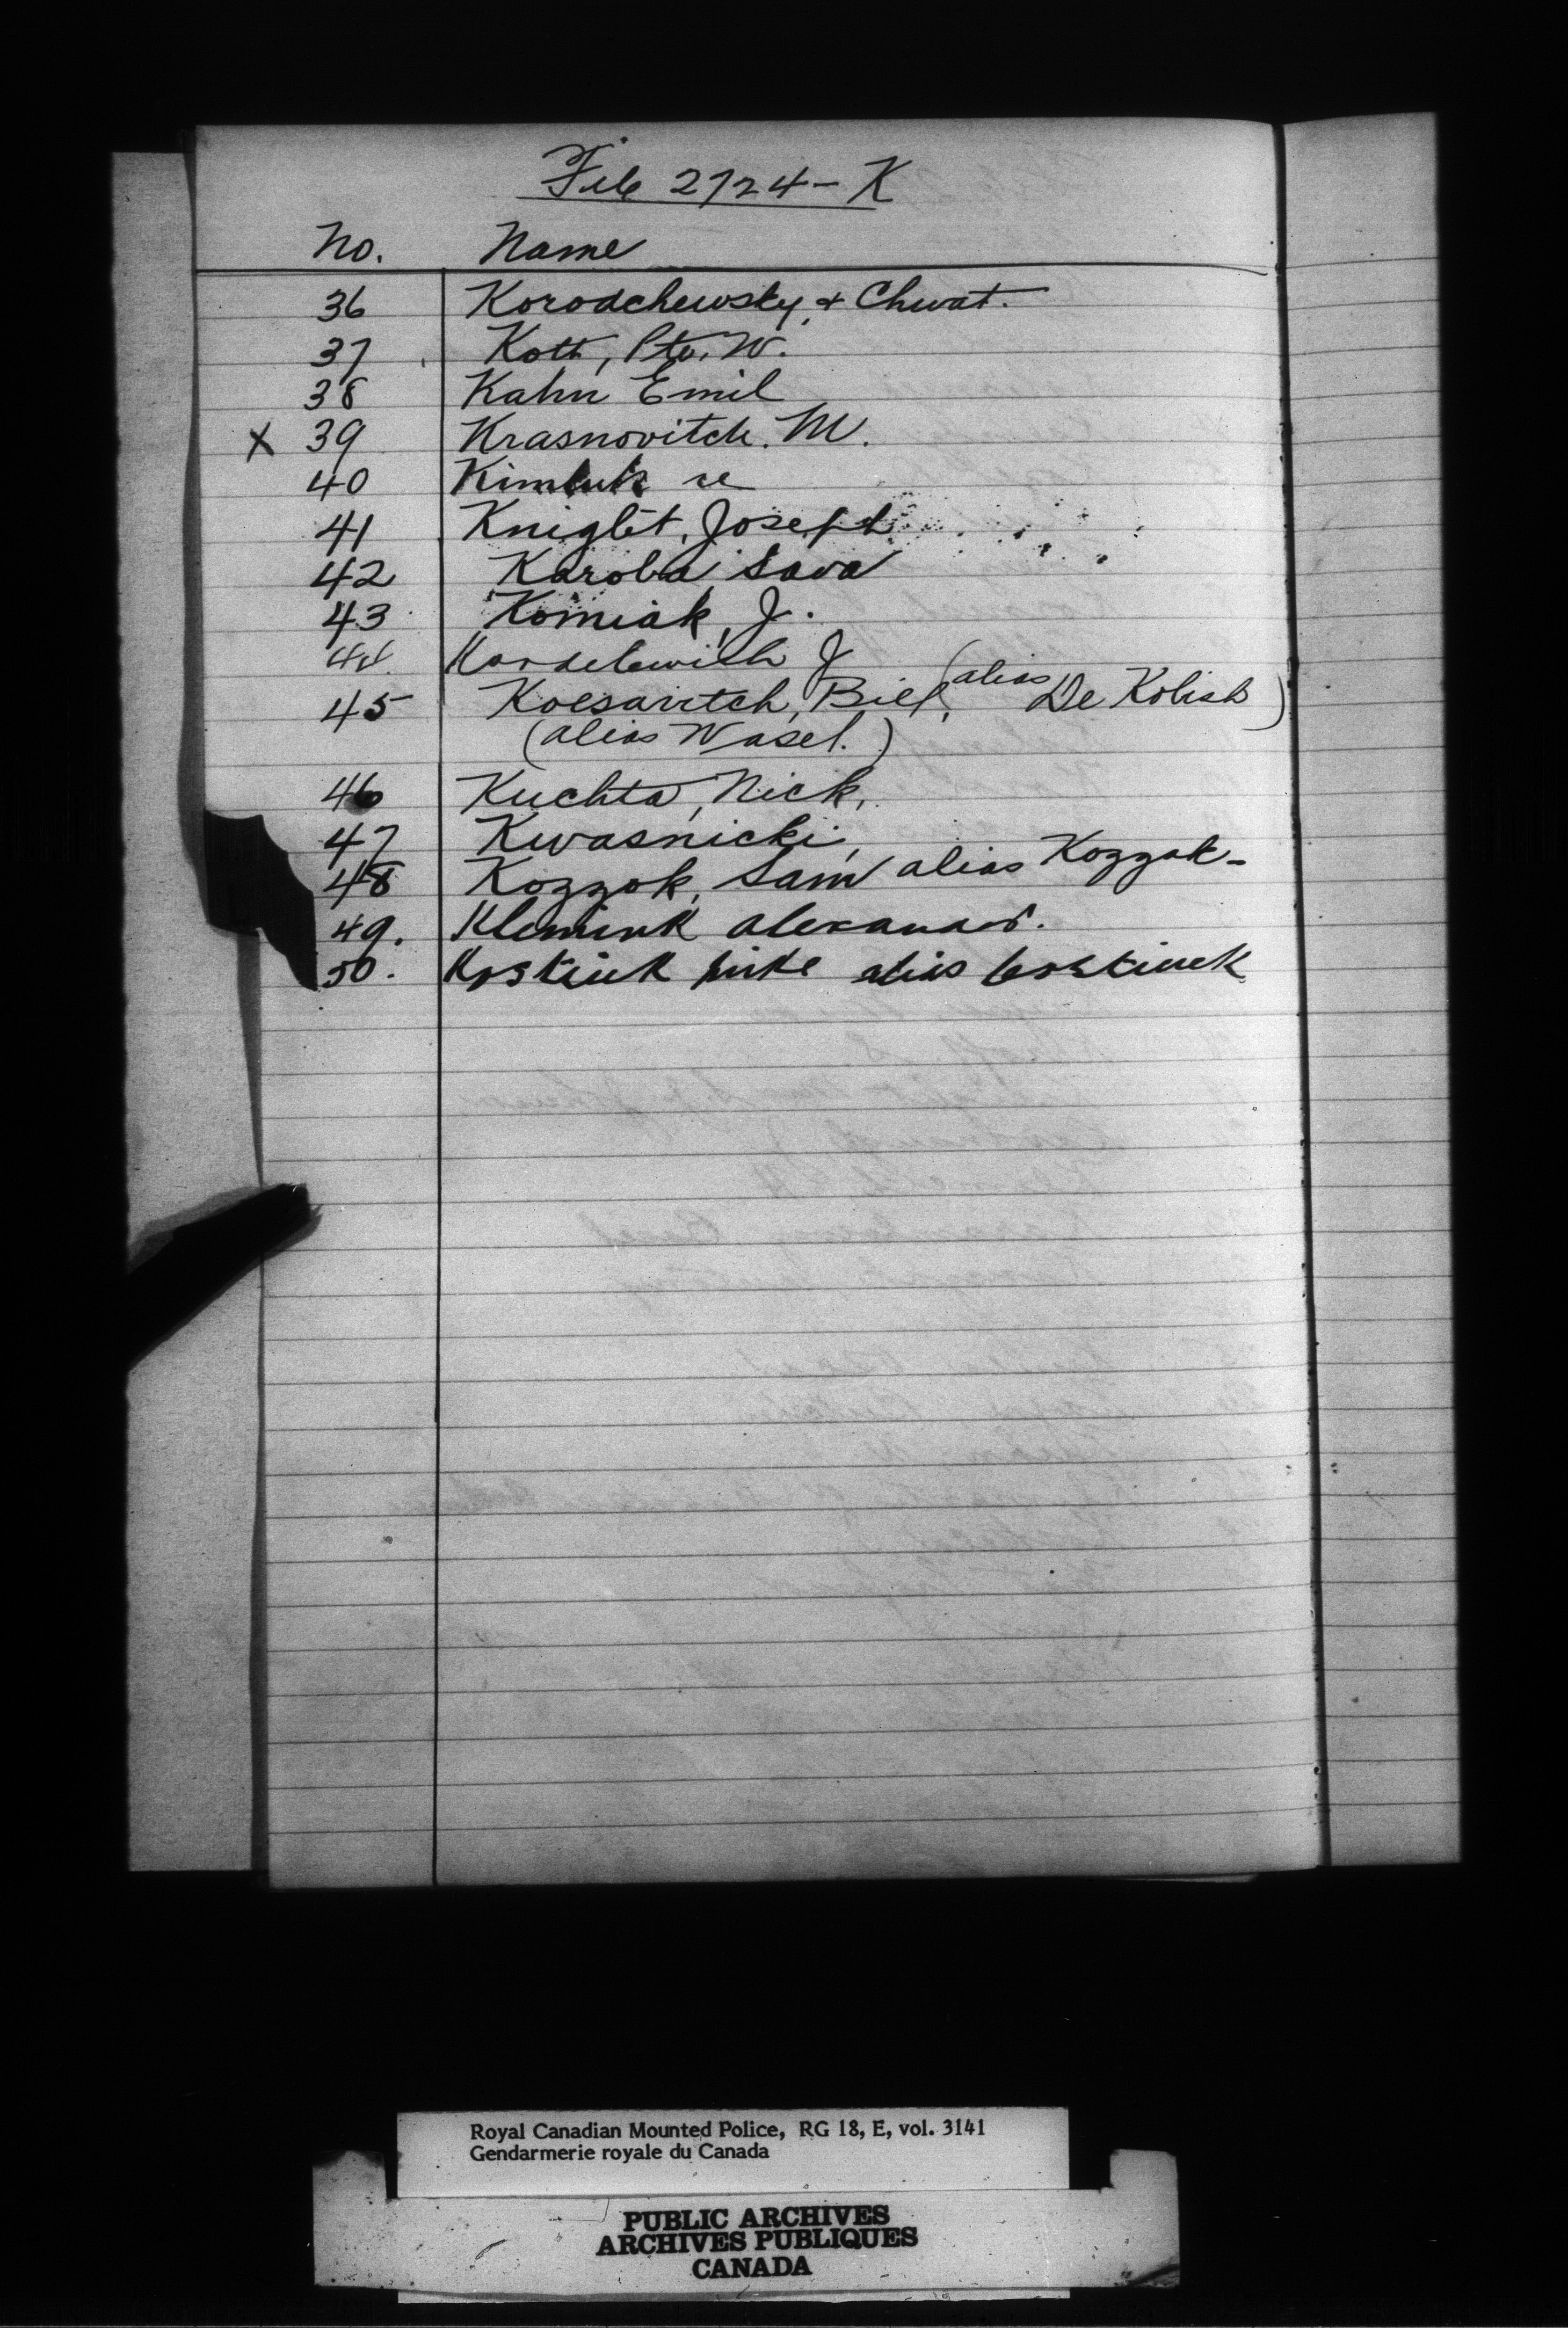 File 2724-K
No. Name
36 Korodchewsky, & Chwat.
37 Kott, Pte. W.
38 Kahn Emil
X 39 Krasnovitch. M.
40 Kimluk re
41 Knight, Joseph
42 Karoba Sava
43 Komiak, J.
44 Kardelewich J
45 Koesavitch, Bill, (alias De Kolish)
(alias Wasel.)
46 Kuchta, Nick,
47 Kwasnicki,
48 Kozzok, Sam alias Kozzak-
49. Klemink alexander.
50. Kostiuk mike alias Costiuck
Royal Canadian Mounted Police, RG 18, E, vol. 3141
Gendarmerie royale du Canada
PUBLIC ARCHIVES
ARCHIVES PUBLIQUES
CANADA